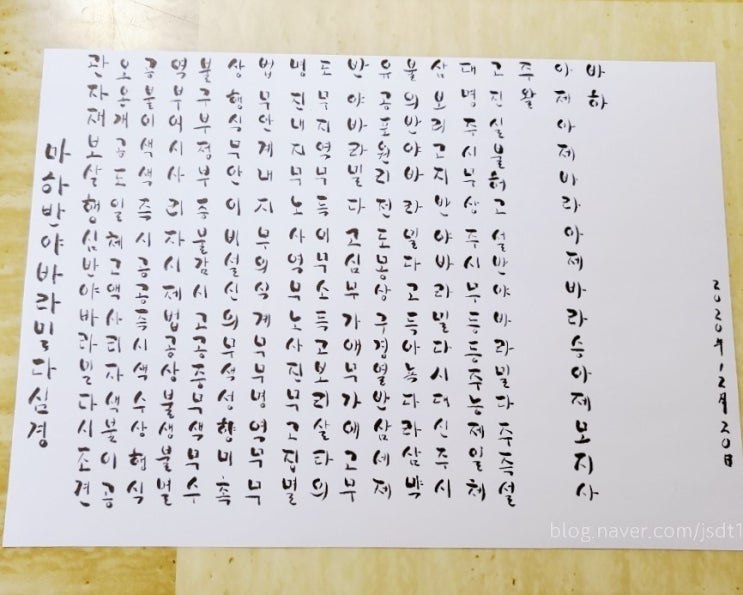 마하반야바라밀다심경
관자재보살행심반야바라밀다시조견
오온개공도일체고액사리자색불이공
공불이색색즉시공공즉시색수상행식
역부여시사리자시제법공상불생불멸
불구부정부증불감시고공중무색무수
상행식무안이비설신의무색성향미촉
법무안계내지무의식계무무명역무무
명진내지무노사역무노사진무고집멸
도무지역무득이무소득고보리살타의
반야바라밀다고심무가애무가애고무
유공포원리전도몽상구경열반삼세제
불의반야바라밀다고득아뇩다라삼먁
삼보리고지반야바라밀다시대신주시
대명주시무상주시무등등주능제일체
고진실불허고설반야바라밀다주즉설
주왈
아제아제바라아제바라승아제모지사
바하
2020年 12月 20日
blog.naver.com/jsdt1